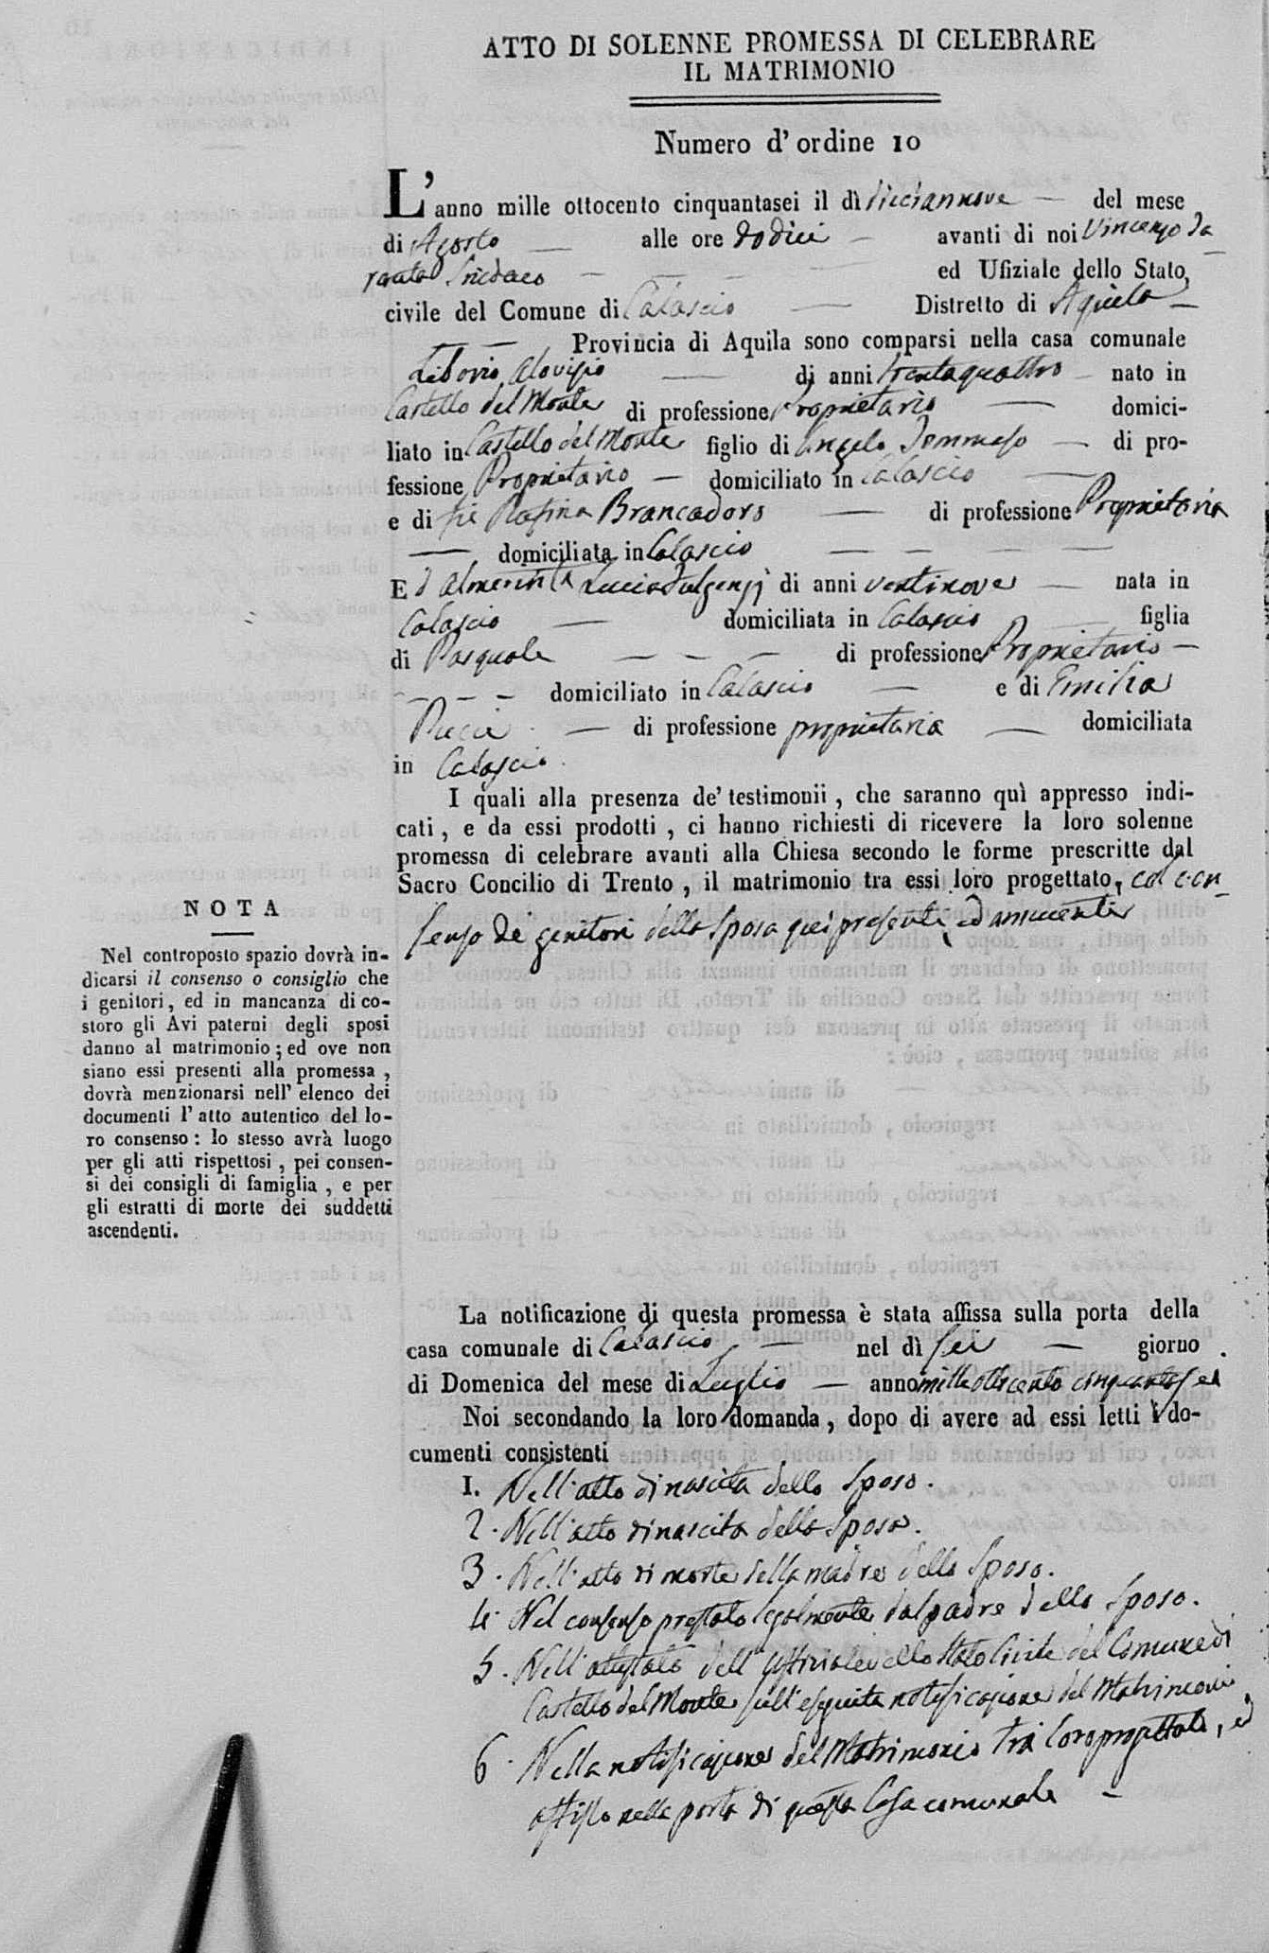 ATTO DI SOLENNE PROMESSA DI CELEBRARE
IL MATRIMONIO
Numero d'ordine 10
L'anno mille ottocento cinquantasei il dì diciannove — del mese
di Agosto — alle ore dodici — avanti di noi Vincenzo
Sindaco — ed Ufiziale dello Stato
civile del Comune di Calascio — Distretto di Aquila —
— Provincia di Aquila sono comparsi nella casa comunale
Liborio Aloysio — di anni trentaquattro — nato in
Castello del Monte di professione Proprietario — domici-
liato in Castello del Monte figlio di Angelo Tommaso — di pro-
fessione Proprietario — domiciliato in Calascio —
e di fu Rosina Brancadoro — di professione Proprietaria
— domiciliata in Calascio — — — —
E d'Almerinta Lucia Fulgenzj di anni ventinove — nata in
Calascio — domiciliata in Calascio — figlia
di Pasquale — — — di professione Proprietario —
— — — — domiciliato in Calascio — e di Emilia
— di professione proprietaria — domiciliata
in Calascio.
I quali alla presenza de' testimonii, che saranno quì appresso indi-
cati, e da essi prodotti, ci hanno richiesti di ricevere la loro solenne
promessa di celebrare avanti alla Chiesa secondo le forme prescritte dal
Sacro Concilio di Trento, il matrimonio tra essi loro progettato, col con-
senso de' genitori della Sposa quì presenti, ed annuenti
NOTA
Nel controposto spazio dovrà in-
dicarsi il consenso o consiglio che
i genitori, ed in mancanza di co-
storo gli Avi paterni degli sposi
danno al matrimonio; ed ove non
siano essi presenti alla promessa,
dovrà menzionarsi nell' elenco dei
documenti l' atto autentico del lo-
ro consenso: lo stesso avrà luogo
per gli atti rispettosi, pei consen-
si dei consigli di famiglia, e per
gli estratti di morte dei suddetti
ascendenti.
La notificazione di questa promessa è stata affissa sulla porta della
casa comunale di Calascio — nel dì sei — giorno
di Domenica del mese di Luglio — anno mille ottocento cinquantasei
Noi secondando la loro domanda, dopo di avere ad essi letti i do-
cumenti consistenti
1. Nell'atto di nascita dello Sposo.
2. Nell'atto di nascita della Sposa.
3. Nell'atto di morte della madre dello Sposo.
4. Nel consenso prestato legalmente dal padre dello Sposo.
5. Nell'attestato dell'Uffiziale dello Stato Civile del Comune di
Castello del Monte sull'eseguita notificazione del Matrimonio
6. Nella notificazione del Matrimonio tra loro progettato, ed
affissa nella porta di questa Casa comunale —